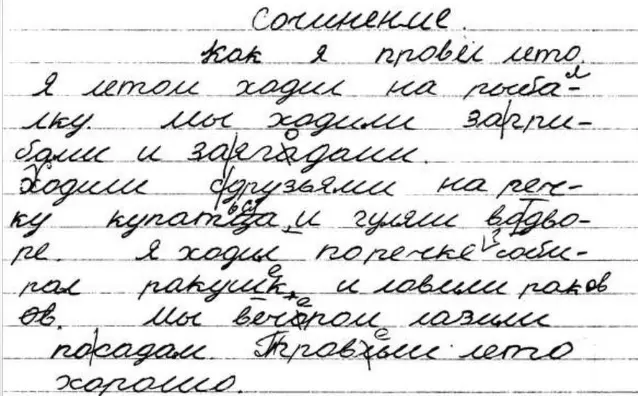 Сочинение.
Как я провёл лето.
Я летом ходил на рыба-
лку. мы ходили загри-
бами и заягадами.
Ходили сдрузьями на реч-
ку купатца, и гуляли водво-
ре. Я ходил поречке соби-
рал ракушк, и ловили раков
ов. Мы вечором лазили
посадам. Правили лето
хорошо.